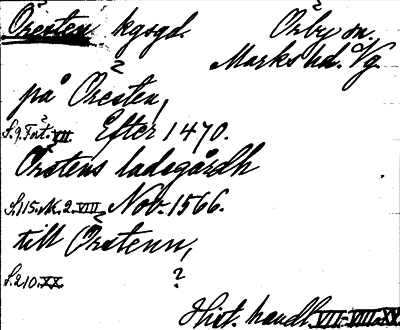 Öresten. kgsgd. Örby sn.
Marks hd. Vg.
på Öresten,
S. 9. Fort. VII Efter 1470.
Örstens ladsgårdh
S. 115. k. 2. VIII, Nov. 1566.
till Örstenn,
S. 210. XX. ?
Hist. handl. VII-VIII-XX